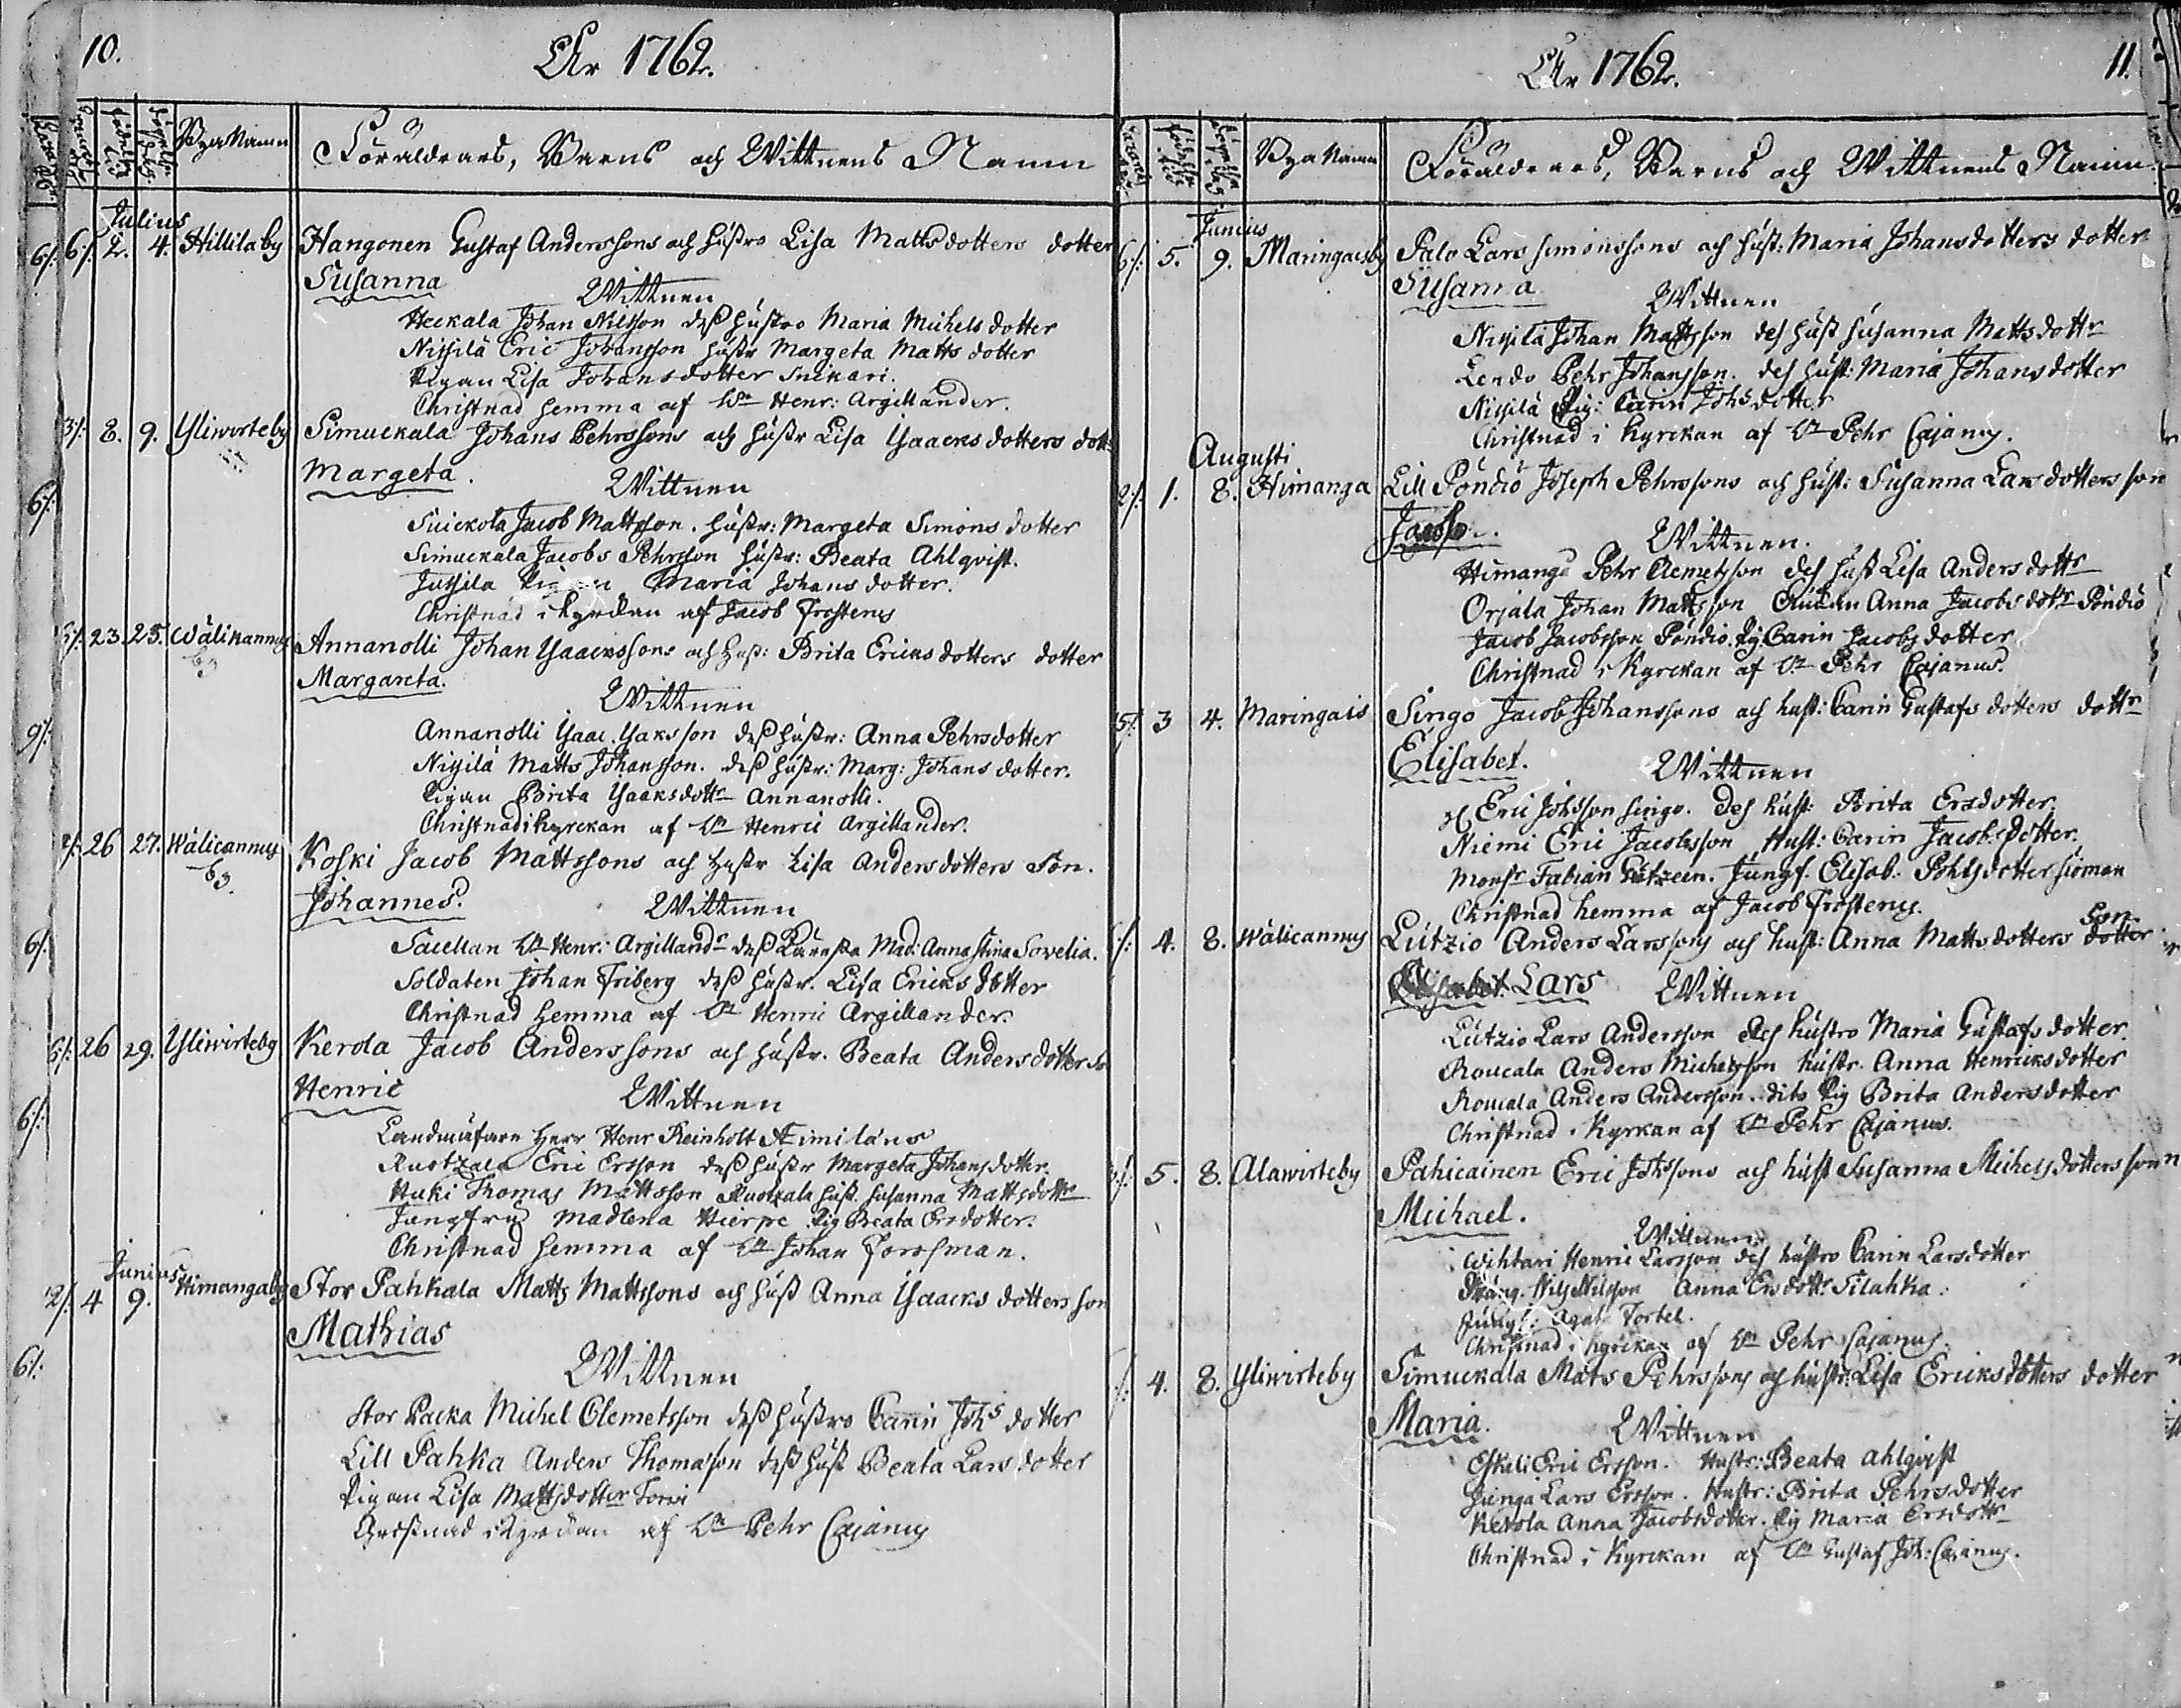 10.
År 1762.
Bya Namn
Föräldrars, Barns och Wittnens Namn
Julius
6/: 6/: 2. 4. Hillilaby Hangonen Gustaf Anderssons och hustro Lisa Mattsdotters dotter
Susanna
Wittnen
Heckala Johan Nilsson dess hustro Maria Michelsdotter
Nissilä Eric Johansson hustr Margeta Mattsdotter
Pigan Lisa Johansdotter Snikari.
Christnad hemma af Wn Henr: Argillander.
3/: 8. 9. Yliwirteby Simuckala Johans Pehrssons och hustr Lisa Ysaacksdotters dott:
Margeta.
6/:
Wittnen
Suickola Jacob Mattsson. hustr: Margeta Simonsdotter
Simuckala Jacobs Pehrsson hustr: Beata Ahlqvist.
Jussila Pigan Maria Johansdotter.
Christnad i Kyrckan af Jacob Frosterus
23. 25. Wälikannus by Annanolli Johan Ysaackssons och Hust: Brita Ericksdotters dotter
Margareta.
Wittnen
9/:
Annanolli Ysaac Ysaksson dess hustr: Anna Pehrsdotter
Nissilä Matts Johansson. dess hustr: Marg: Johansdotter.
Pigan Brita Ysaaksdottr Annanolli.
Christnad i Kyrckan af Wn Henric Argillander.
2/: 26 27. Wälicannus by. Koski Jacob Mattssons och Hustr Lisa Andersdotters Son.
Johannes.
Wittnen
6/:
Sacellan Wn Henr: Argillandr dess Käresta Mad: Anna Stina Sovelia.
Soldaten Johan Friberg dess hustr. Lisa Ericksdotter
Christnad hemma af Wn Henric Argillander.
6/: 26 29. Yliwirteby Kerola Jacob Anderssons och hustr. Beata Andersdotter So
Henric
6/:
Wittnen
Landmätaren Herr Henr Reinholt Aimiläus
Ruotzala Eric Ersson dess hustr Margeta Johansdotter.
Huki Thomas Mattsson Ruotzala hust. Susanna Mattsdottr
Jungfru Madlena Hierpe Pig Beata Ersdotter.
Christnad hemma af Wn Johan Forssman.
Junius
2/: 4 9. Himangaby Stor Pahkala Matts Mattssons och hust Anna Ysaacksdotters son
Mathias
6/:
Wittnen
Stor Packa Michel Clemetsson dess hustro Carin Johsdotter
Lill Pahka Anders Thomasson dess hust Beata Larsdotter
Pigan Lisa Mattsdotter Torvi
Christnad i Kyrckan af Wn Pehr Cajanus
År 1762.
11.
Bya Namn
Föräldrars, Barns och Wittnens Namn
Junius
6/: 5. 9. Maringaisby Palo Lars Simonssons och hust: Maria Johansdotters dotter
Susanna
Wittnen
Nissilä Johan Mattsson des hust Susanna Mattsdottr
Lendo Pehr Johansson. des hust: Maria Johansdotter
Nissilä Pig: Carin Johsdotter
Christnad i Kyrckan af Wn Pehr Cajanus.
Augusti
2/: 1. 8. Himanga Lill Pöndiö Joseph Pehrssons och hust: Susanna Larsdotters son
Wittnen.
Himanga Pehr Clemetsson des hust Lisa Andersdottr
Orjala Johan Mattsson Anna Jacobsdottr Pöndiö
Jacob Jacobsson Pöndiö. Pig. Carin Jacobsdotter
Christnad i Kyrckan af Wn Pehr Cajanus.
5/: 3 4. Maringais Singo Jacob Johanssons och hust: Carin Gustafsdotters dottr
Elisabet.
Wittnen
Eric Johsson Singo. des hust: Brita Ersdotter.
Niemi Eric Jacobsson Hust: Carin Jacobsdotter.
Monsr Fabian Jungf. Elisab. Pohlsdotter Siöman
Christnad hemma af Jacob Frosterus.
4. 8. Wälicannus Lützio Anders Larssons och hust: Anna Mattsdotters dotter Son
Elisabet. Lars
Wittnen
Lützio Lars Andersson des hustro Maria Gustafsdotter.
Roucala Anders Michelsson hustr. Anna Henricksdotter
Roucala Anders Andersson. dito Pig Brita Andersdotter
Christnad i Kyrkan af Wn Pehr Cajanus.
3/: 5. 8. Alawirteby Pahicainen Eric Johssons och hust Susanna Michelsdotters son
Michael.
Wittnen
Wihtari Henric Larsson des hustro Carin Larsdotter
Dräng. Nils Nilsson Anna Ersdottr Tilahka.
Jungf: Agat: Tortel.
Christnad i Kyrckan af Wn Pehr Cajanus.
4. 8. Yliwirteby Simuckala Mats Pehrssons och hustr: Lisa Ericksdotters dotter
Maria.
Wittnen
Eskeli Eric Ersson. Hustr: Beata Ahlqvist
Junga Lars Ersson. Hustr: Brita Pehrsdotter
Kerola Anna Jacobsdotter. Pig Maria Ersdottr
Christnad i Kyrckan af Wn Gustaf Joh: Cajanus.